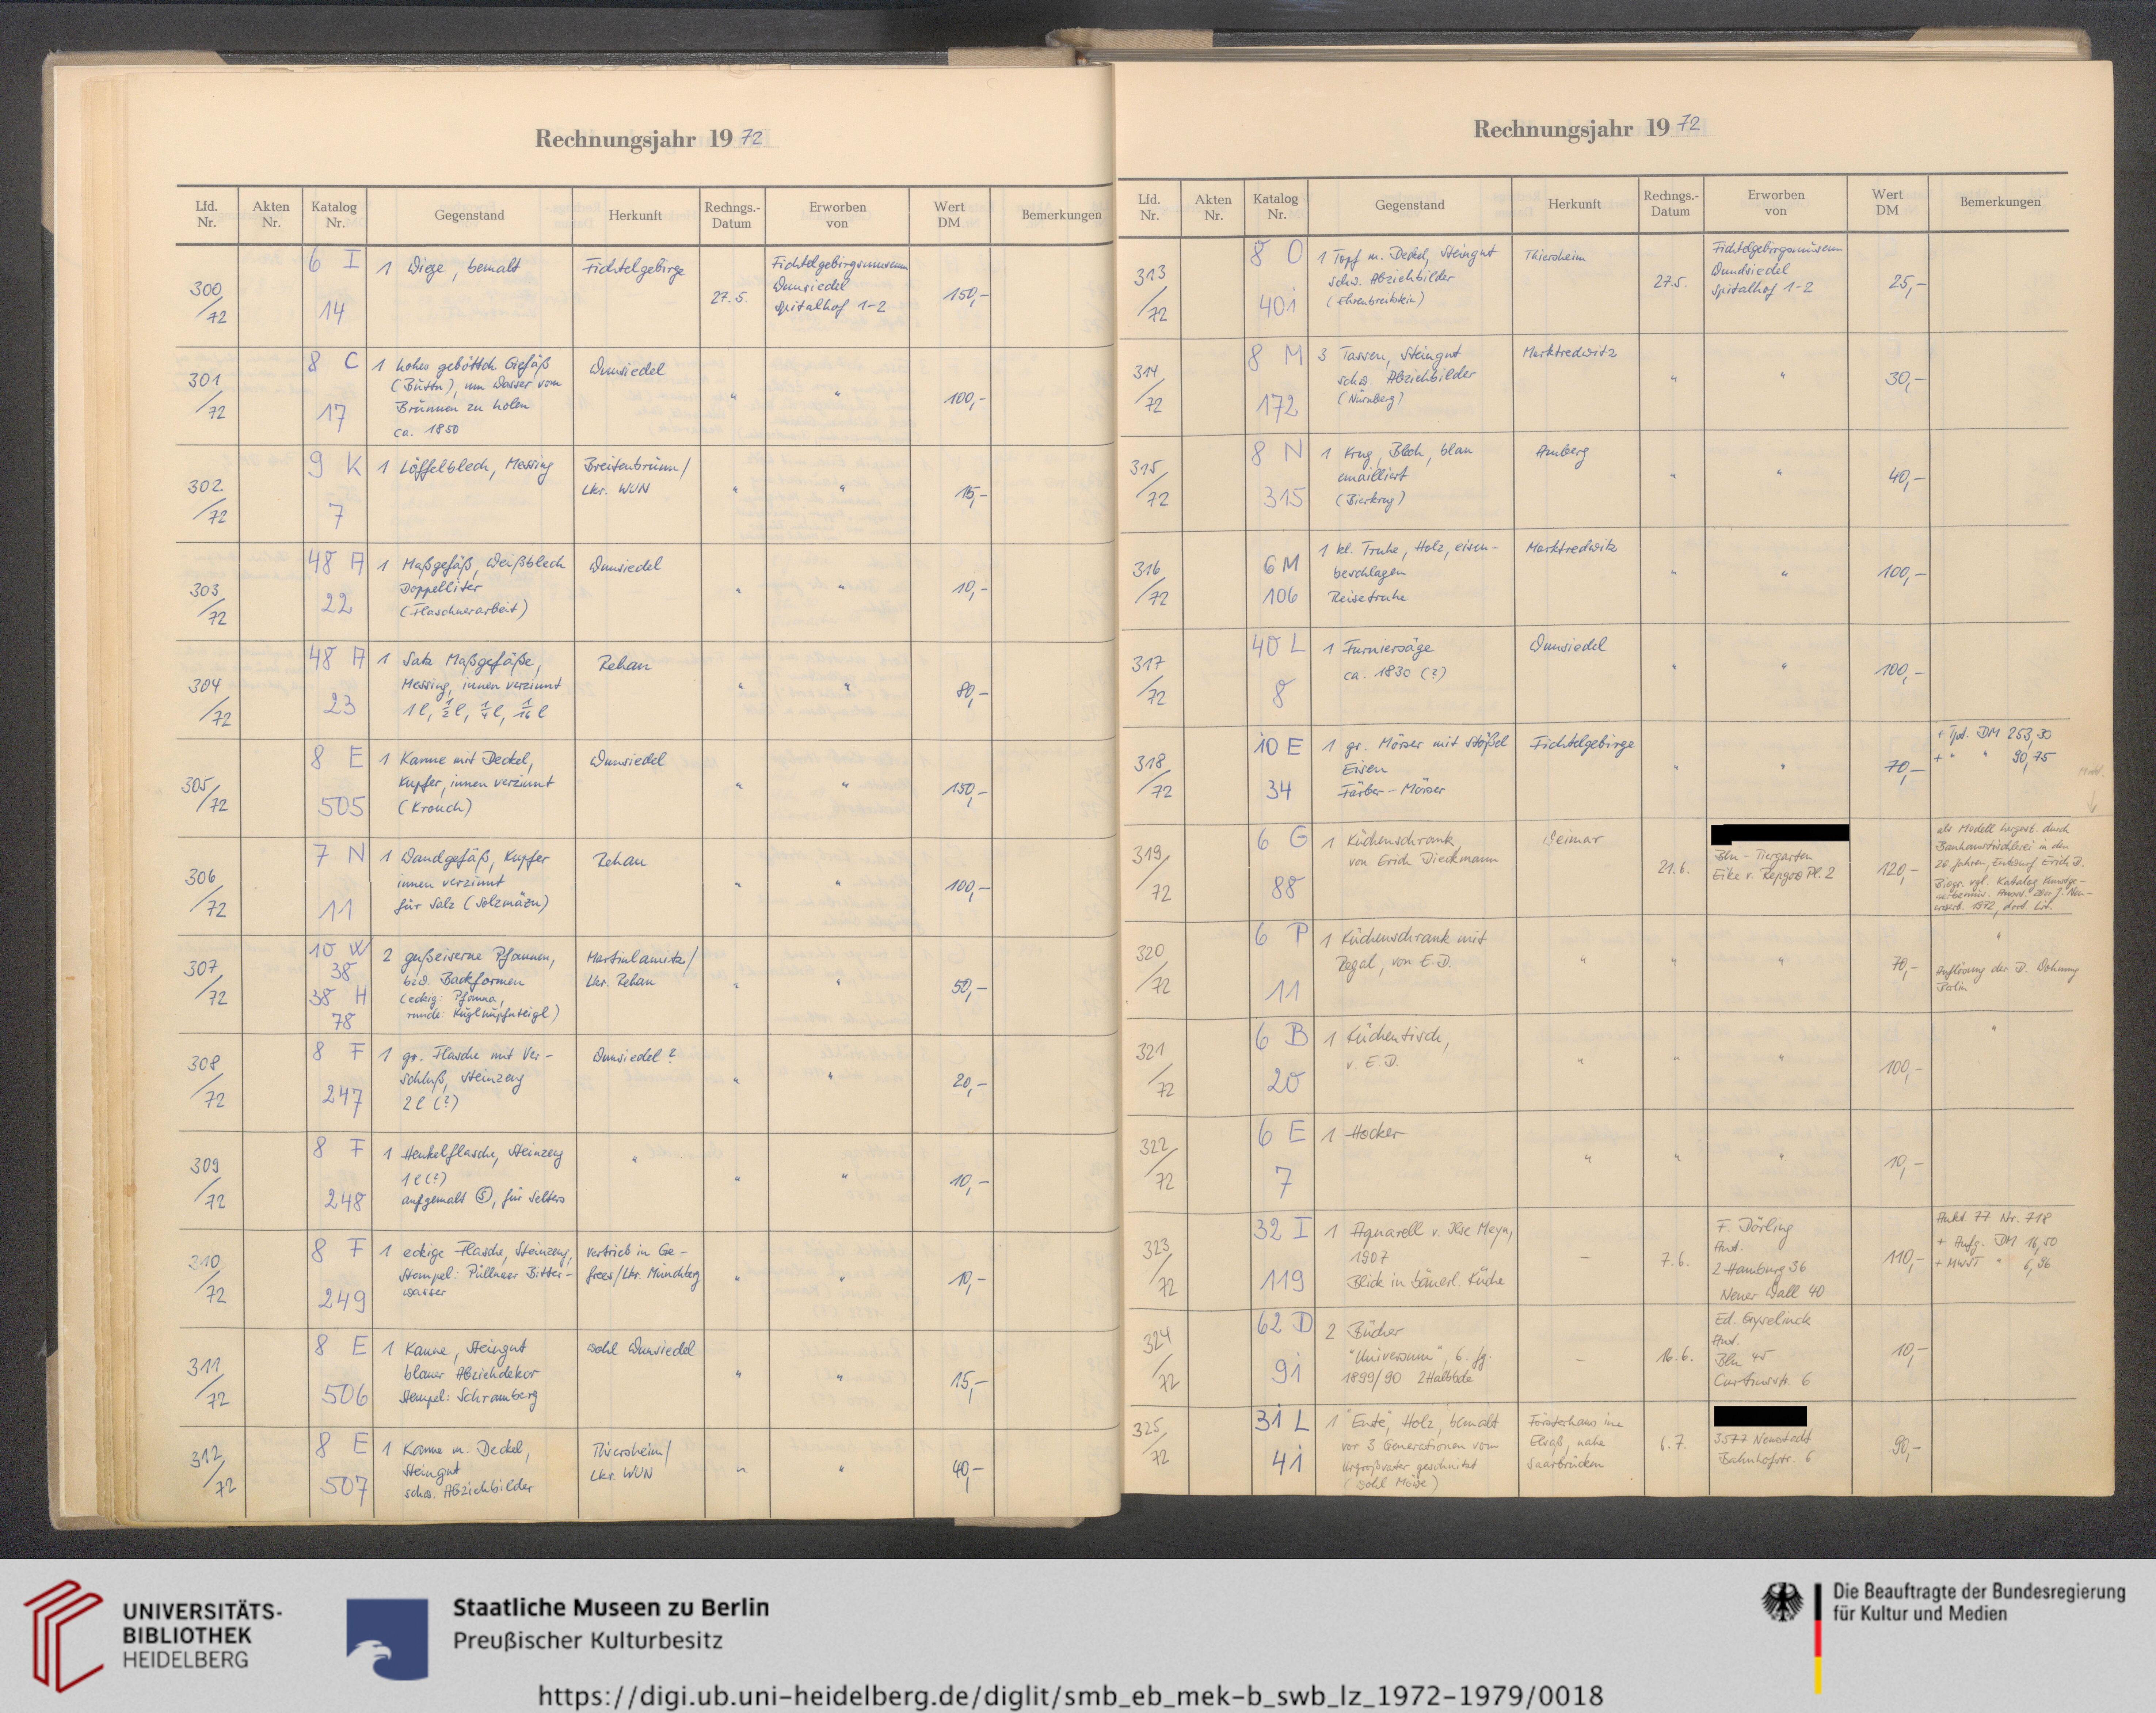 Rechnungsjahr 19 72
Lfd. Nr. Akten Nr. Katalog Nr. Gegenstand Herkunft Rechngs.-Datum Erworben von Wert DM Bemerkungen
300/72 6 I 14 1 Wiege, bemalt Fichtelgebirge 27.5. Fichtelgebirgsmuseum
Wunsiedel
Spitalhof 1-2 150,-
301/72 8 C 17 1 hohes geböttch. Gefäß
(Büttn), um Wasser vom
Brunnen zu holen
ca. 1850 Wunsiedel " " 100,-
302/72 9 K 7 1 Löffelblech, Messing Breitenbrunn/
Lkr. WUN " " 15,-
303/72 48 A 22 1 Maßgefäß, Weißblech
Doppelliter
(Flaschnerarbeit) Wunsiedel " " 10,-
304/72 48 A 23 1 Satz Maßgefäße,
Messing, innen verzinnt
1 l, 1/2 l, 1/4 l, 1/16 l Rehau " " 80,-
305/72 8 E 505 1 Kanne mit Deckel,
Kupfer, innen verzinnt
(Krouch) Wunsiedel " " 150,-
306/72 7 N 11 1 Wandgefäß, Kupfer
innen verzinnt
für Salz (Solzmäzn) Rehau " " 100,-
307/72 10 W 38 38 H 78 2 gußeiserne Pfannen,
bzw. Backformen
(eckig: Pfanna,
runde: ) Martinlamitz/
Lkr. Rehau " " 50,-
308/72 8 F 247 1 gr. Flasche mit Ver-
schluß, Steinzeug
2 l (?) Wunsiedel? " " 20,-
309/72 8 F 248 1 Henkelflasche, Steinzeug
1 l (?)
aufgemalt S, für Selters " " " 10,-
310/72 8 F 249 1 eckige Flasche, Steinzeug,
Stempel: Püllnaer Bitter-
wasser Vertrieb in Ge-
frees/Lkr. Münchberg " " 10,-
311/72 8 E 506 1 Kanne, Steingut
blauer Abziehdekor
Stempel: Schramberg wohl Wunsiedel " " 15,-
312/72 8 E 507 1 Kanne m. Deckel,
Steingut
schw. Abziehbilder Thiersheim/
Lkr. WUN " " 40,-
Rechnungsjahr 19 72
Lfd. Nr. Akten Nr. Katalog Nr. Gegenstand Herkunft Rechngs.-Datum Erworben von Wert DM Bemerkungen
313/72 8 O 401 1 Topf m. Deckel, Steingut
schw. Abziehbilder
(Ehrenbreitstein) Thiersheim 27.5. Fichtelgebirgsmuseum
Wundsiedel
Spitalhof 1-2 25,-
314/72 8 M 172 3 Tassen, Steingut
schw. Abziehbilder
(Nürnberg) Marktredwitz " " 30,-
315/72 8 N 315 1 Krug, Blech, blau
emailliert
(Bierkrug) Amberg " " 40,-
316/72 6 M 106 1 kl. Truhe, Holz, eisen-
beschlagen
Reisetruhe Marktredwitz " " 100,-
317/72 40 L 8 1 Furniersäge
ca. 1830 (?) Wunsiedel " " 100,-
318/72 10 E 34 1 gr. Mörser mit Stößel
Eisen
Färber-Mörser Fichtelgebirge " " 70,- + Tpt. DM 253,30
+ " " 90,75
319/72 6 G 88 1 Küchenschrank
von Erich Dieckmann Weimar 21.6. Bln-Tiergarten
Eike v. Repgow Pl. 2 120,- als Modell hergest. durch
Bauhaustischlerei in den
20. Jahren, Entwurf Erich D.
Biogr. vgl. Katalog Kunstge-
werbemus.
1972, dort Lit.
320/72 6 P 11 1 Küchenschrank mit
Regal, von E.D. " " " 70,- "
Auflösung der D. Wohnung
Berlin
321/72 6 B 20 1 Küchentisch,
v. E.D. " " " 100,- "
322/72 6 E 7 1 Hocker " " " 10,-
323/72 32 I 119 1 Aquarell v. Ilse Meyn,
1907
Blick in bäuerl. Küche - 7.6. F. Dörling
Ant.
2 Hamburg 36
Neuer Wall 40 110,- Aukt. 77 Nr. 718
+ Aufg. DM 16,50
+ MWST " 6,96
324/72 62 D 91 2 Bücher
"Universum", 6. Jg.
1899/90 2 Halbbde - 16.6. Ed. Gyselinck
Ant.
Bln 45
Curtiusstr. 6 10,-
325/72 31 L 41 1 "Ente", Holz, bemalt
vor 3 Generationen vom
Urgroßvater geschnitzt
(wohl Möwe) Försterhaus im
Elsaß, nahe
Saarbrücken 6.7. 3577 Neustadt
Bahnhofstr. 6 90,-
UNIVERSITÄTS-
BIBLIOTHEK
HEIDELBERG
Staatliche Museen zu Berlin
Preußischer Kulturbesitz
Die Beauftragte der Bundesregierung
für Kultur und Medien
https://digi.ub.uni-heidelberg.de/diglit/smb_eb_mek-b_swb_lz_1972-1979/0018